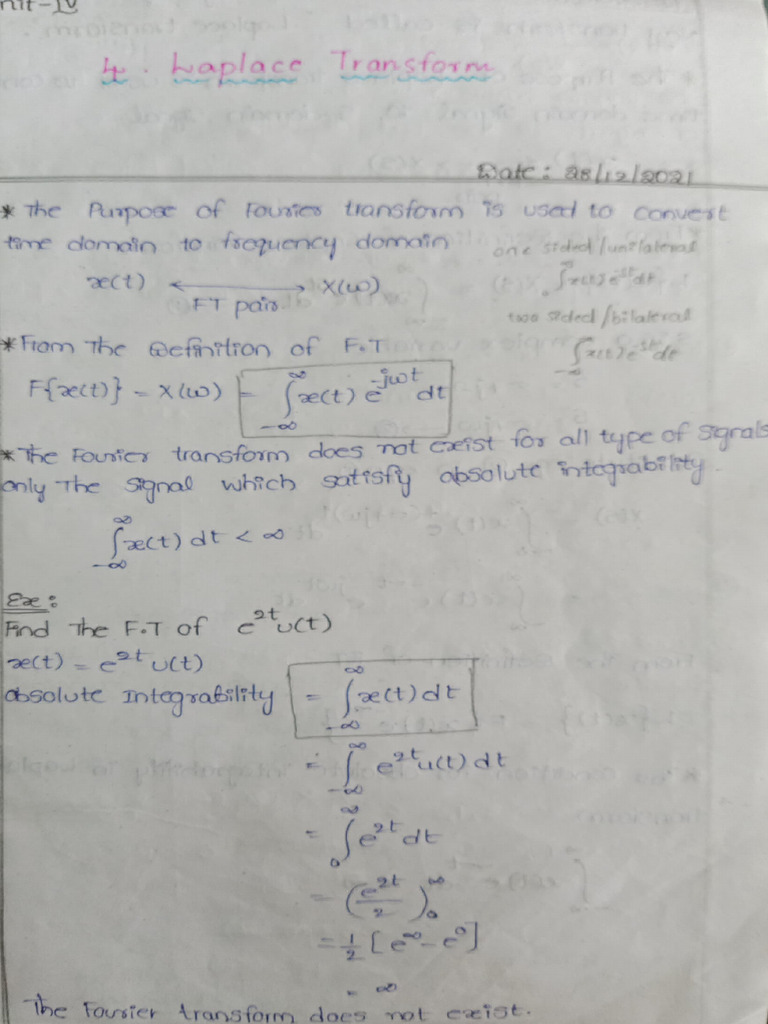 nit-IV
4. Laplace Transform
Date: 28/12/2021
* The Purpose of Fourier transform is used to convert
time domain to frequency domain
one sided/unilateral
x(t) ⟷ X(ω)
FT pair
∫₀^∞ x(t) e^-st dt
two sided/bilateral
∫_-∞^∞ x(t) e^-st dt
* From The Definition of F.T
F{x(t)} = X(ω) = ∫_-∞^∞ x(t) e^-jωt dt
* The Fourier transform does not exist for all type of signals
only The signal which satisfy absolute integrability.
∫_-∞^∞ x(t) dt < ∞
Ex:
Find The F.T of e^2t u(t)
x(t) = e^2t u(t)
absolute Integrability = ∫_-∞^∞ x(t) dt
= ∫_-∞^∞ e^2t u(t) dt
= ∫_0^∞ e^2t dt
= (e^2t/2)_0^∞
= 1/2 [e^∞ - e^0]
= ∞
The Fourier transform does not exist.